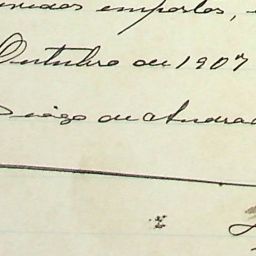 impostos,
Outubro de 1907
Diogo de Andrad